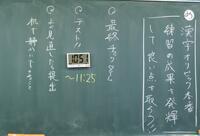 漢字オリンピック本番
練習の成果を発揮
して良い点を取ろう!!
①最終チェック
②テスト!!
10:51
～11:25
③見直したら提出
机で静かにすごそう